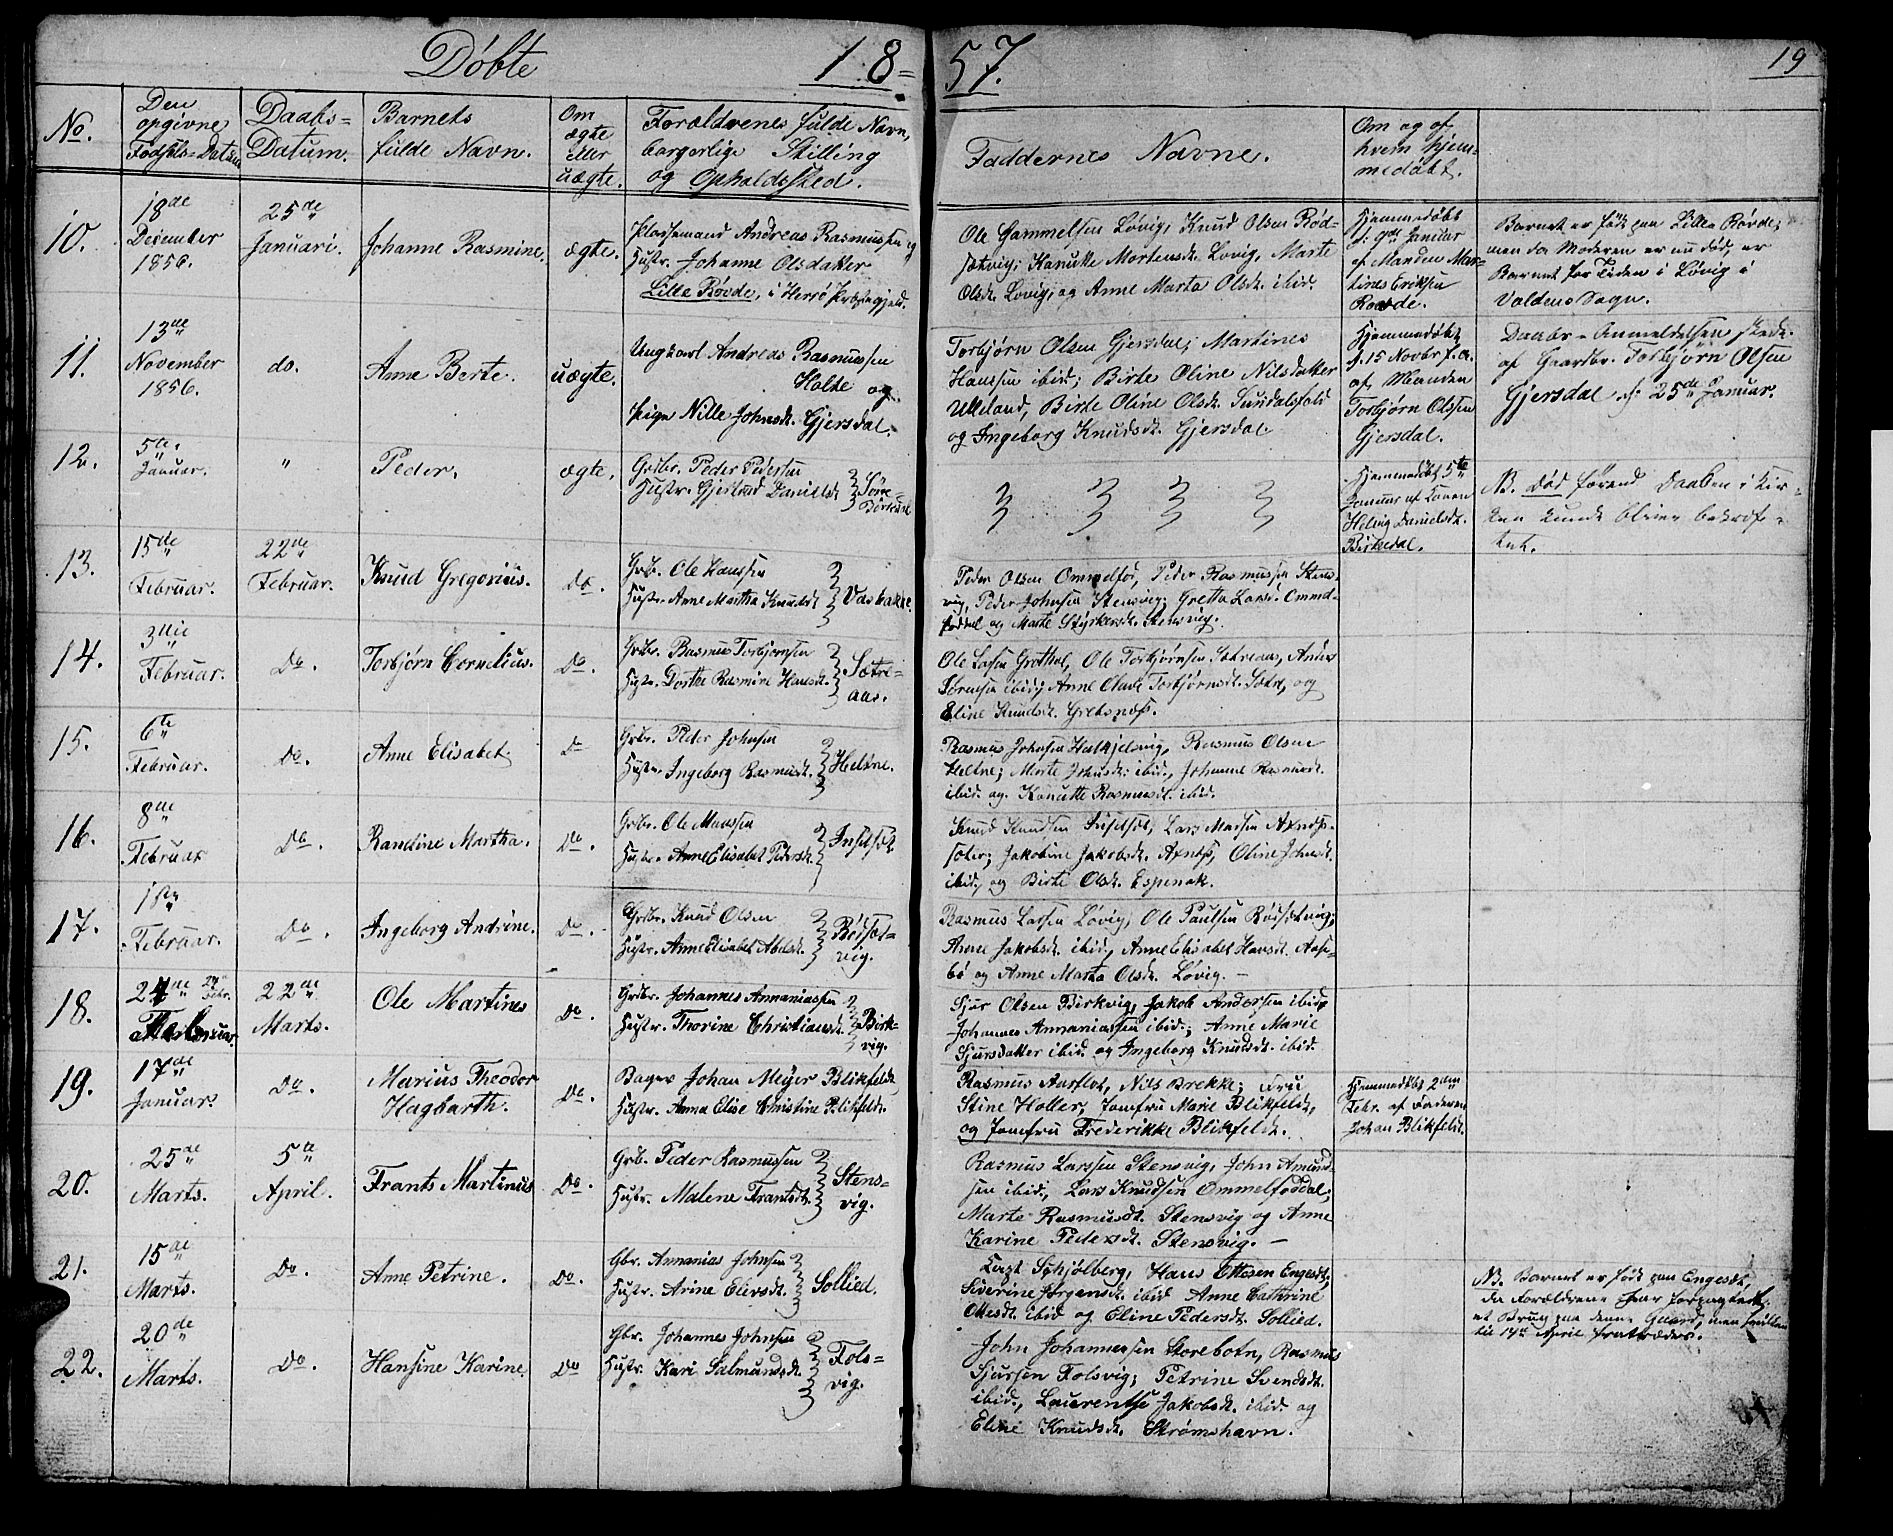 Döbte 18=57. 19
No.
Den
opgivne
Fødsels=Datum
Daabs=
Datum.
Barnets
fulde Navn.
Om
ægte
eller
uægte.
Forældrenes fulde Navn,
borgerlige Stilling
og Opholdssted.
Faddernes Navne.
Om og af
hvem hjem-
medøbt.
10.
18de
December
1856.
25de
Januari.
Johanne Rasmine.
ægte.
Pladsemand Andreas Rasmussen og
Hustr. Johanne Olsdatter
Lille Røvde, i Herrø Præstegjeld.
Ole Gammelsen Løvig, Knud Olsen Rød-
sætvig; Kanutte Mortensdt. Lovig, Marte
Olsdt. Lovig, og Anne Marta Olsdt. ibid.
Hjemmedøbt
d. 9de Januar
af Manden Mar-
tines Eriksen
Røvde.
Barnet er født paa Lille Røvde;
men da Moderen er nu død, er
Barnet for Tiden i Løvig i
Voldens Sogn.
11.
13de
November
1856.
do.
Anne Berte.
uægte.
Ungkarl Andreas Rasmussen
Holte og
Pige Nille Johnsdt. Gjersdal.
Torbjørn Olsen Gjersdal; Martines
Hanssen ibid; Birte Oline Nilsdatter
Ulleland, Birte Oline Olsdt. Sundalsfold
og Ingeborg Knudsdt. Gjersdal
Hjemmedøbt
d. 15 Novbr. f. a.
af Manden
Torbjørn Olssen
Gjersdal.
Daabs-Anmeldelsen skede
af Gaardbr. Torbjørn Olsen
Gjersdal d. 25de Januar.
12.
5te
Januar.
"
Peder.
ægte.
Grdbr. Peder Pedersen
Hustr. Gjertrud Danielsdt.
Søre-
Birkedal
Hjemmedøbt 5te
Januar af Konen
Helvig Danielsdt.
Birkedal.
NB. død førend Daaben i Kir-
ken kunde blive bekræf-
tet.
13.
15de
Februar.
22de
Februar.
Knud Gregorius.
do.
Grdbr. Ole Hanssen
Hustr. Anne Martha Knudsdt
Vasbakke
Peder Olsen Ommelfor, Peder Rasmussen Stens-
vig, Peder Johnsen Stensvig; Gretta Larsd. Ommel-
foddal og Marte Styrkersdt. Stensvig.
14.
3die
Februar.
Do.
Torbjørn Cornelius.
Do
Grdbr. Rasmus Torbjornsen
Hustr. Dortee Rasmine Hansdt.
Sætre-
aas.
Ole Larsen Grothol, Ole Torbjørnsen Sætreaas, Anders
Sørensen ibid; Anne Oline Torbjørnsdt. Sætre, og
Eline Knudsdt. Grebsnæss.
15.
6te
Februar.
Do.
Anne Elisabet
Do
Grdbr. Peder Johnsen
Hustr. Ingeborg Rasmusdt.
Heltne.
Rasmus Johnsen Halkjelsvig, Rasmus Olsen
Heltne; Marte Johnsdt. ibid., Johanne Rasmusdt.
ibid. og Kanutte Rasmusdt. ibid.
16.
8de
Februar
Do.
Randine Martha.
Do.
Grdbr. Ole Monssen
Hustr. Anne Elisabet Pedersdt.
Insetsæt
Knud Knudsen Insetsæt, Lars Larsen Axnæs-
sæter; Jakobine Jakobsdt. Axnæs, Oline Johnsdt.
ibid. og Birte Olsdt. Espenak.
17.
1ste
Februar.
Do.
Ingeborg Andrine.
Do.
Grdbr. Knud Olsen
Hustr. Anne Elisabet Abelsdt.
Rødsæt-
vig.
Rasmus Larsen Løvig, Ole Paulsen Rødsætvig;
Anne Jakobsdt. ibid., Anne Elisabet Hansdt. Aase-
bø og Anne Marta Olsdt. Løvig.
18.
24de
Februar
22de
Marts.
Ole Martines
Do.
Grdbr. Johannes Annaniassen
Hustr. Thorine Christiansdt.
Birk-
vig.
Sjur Olsen Birkvig, Jakob Andersen ibid,
Johannes Annaniassen ibid.; Anne Marie
Sjursdatter ibid. og Ingeborg Knudsdt. ibid.
19.
17de
Januar.
Do.
Marius Theodor
Hagbarth.
Do.
Bager Johan Meyer Blikfeldt
Hustr. Anna Elise Christine Blikfeldt.
Rasmus Aarflot, Nils Brekke; Fru
Stine Holler, Jomfru Marie Blikfeldt,
og Jomfru Frederikke Blikfeldt.
Hjemmedøbt 2den
Febr. af Faderen
Johan Blikfeldt.
20.
25de
Marts.
5te
April.
Frants Martinus
Do.
Grb. Peder Rasmussen
Hustr. Malene Frantsdt.
Stens-
vig.
Rasmus Larssen Stensvig, John Amund-
sen ibid., Lars Knudsen Ommelfoddal;
Marte Rasmusdt. Stensvig og Anne
Karine Pedersdt. Stensvig.
21.
15de
Marts.
Do.
Anne Petrine.
Do.
Gbr. Annanias Johnsen
Hustr. Arine Eliesdt.
Sollied.
Knut Schjølberg, Hans Ottesen Engesdt.
Siverine Jørgensdt. ibid Anne Cathrine
Ottesdt. ibid og Eline Pedersdt. Sollied.
NB. Barnet er født paa Engesdt,
da Forældrene har forpagtet
et Brug paa denne Gaard, men
til 14de April fratræder.
22.
20de
Marts.
Do.
Hansine Karine.
Do
Gbr. Johannes Johnsen
Hustr. Kari Salmundsdt.
Fols-
vig.
John Johannessen Storebotn, Rasmus
Sjursen Folsvig; Petrine Svendsdt.
ibid., Laurentse Jakobsdt. ibid. og
Eline Knudsdt. Strømshavn.